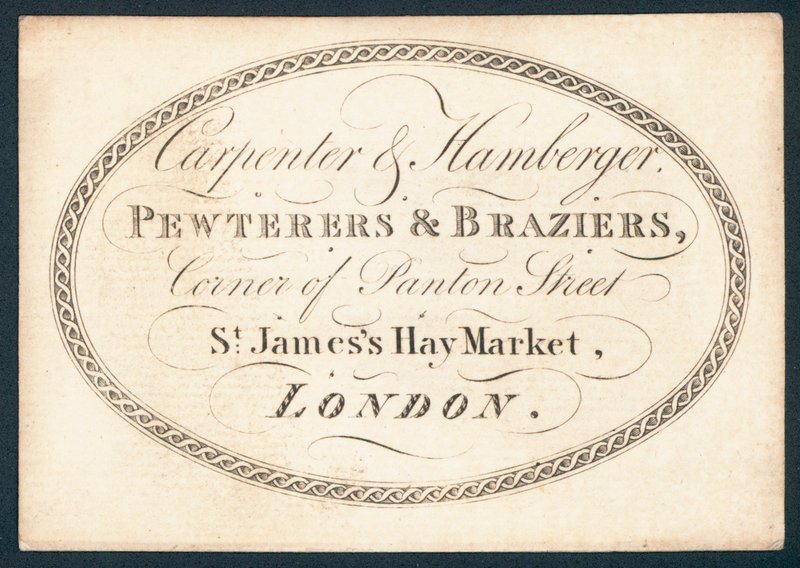 Carpenter & Hamberger.
PEWTERERS & BRAZIERS,
Corner of Panton Street
St. James's Hay Market,
LONDON.